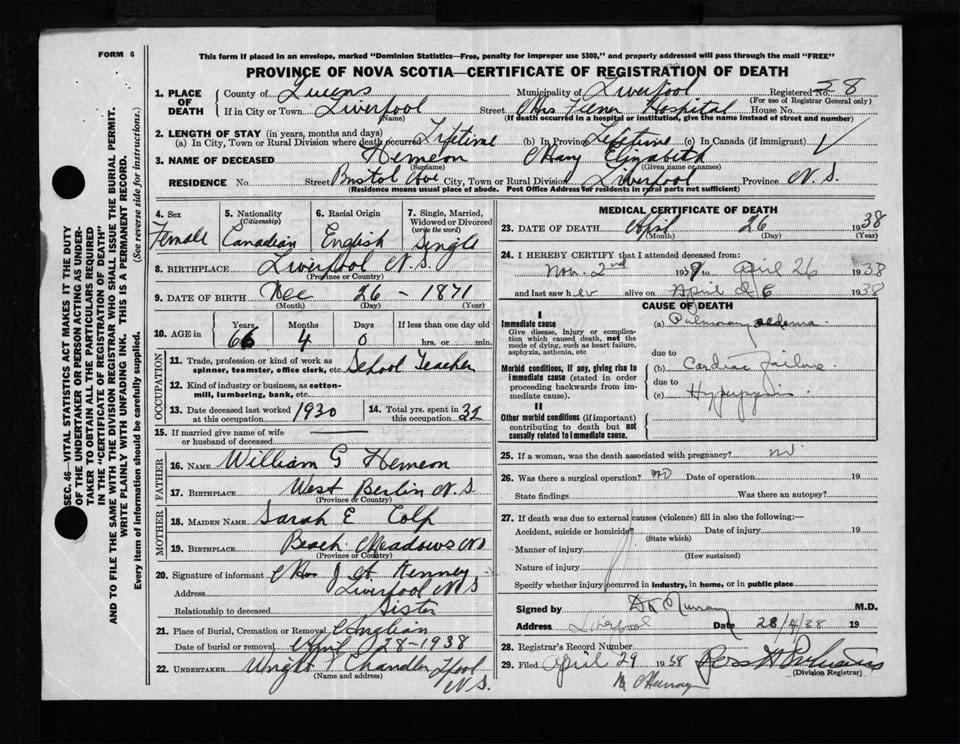 FORM 6
This form if placed in an envelope, marked "Dominion Statistics—Free, penalty for improper use $300," and properly addressed will pass through the mail "FREE"
PROVINCE OF NOVA SCOTIA—CERTIFICATE OF REGISTRATION OF DEATH
SEC. 46—VITAL STATISTICS ACT MAKES IT THE DUTY
OF THE UNDERTAKER OR PERSON ACTING AS UNDER-
TAKER TO OBTAIN ALL THE PARTICULARS REQUIRED
IN THE "CERTIFICATE OF REGISTRATION OF DEATH"
AND TO FILE THE SAME WITH THE DIVISION REGISTRAR WHO SHALL ISSUE THE BURIAL PERMIT.
WRITE PLAINLY WITH UNFADING INK. THIS IS A PERMANENT RECORD.
Every item of information should be carefully supplied. (See reverse side for instructions.)
1. PLACE OF DEATH County of Queens Municipality of Liverpool Registered No. 58
(For use of Registrar General only)
If in City or Town Liverpool Street Hospital House No.
(Name) (If death occurred in a hospital or institution, give the name instead of street and number)
2. LENGTH OF STAY (in years, months and days)
(a) In City, Town or Rural Division where death occurred Lifetime (b) In Province Lifetime (c) In Canada (if immigrant)
3. NAME OF DECEASED Hemeon Mary Elizabeth
(Surname) (Given name or names)
RESIDENCE No. Street Bristol Ave City, Town or Rural Division Liverpool Province N.S.
(Residence means usual place of abode. Post Office Address for residents in rural parts not sufficient)
4. Sex 5. Nationality (Citizenship) 6. Racial Origin 7. Single, Married, Widowed or Divorced (write the word)
Female Canadian English Single
8. BIRTHPLACE Liverpool N.S.
(Province or Country)
9. DATE OF BIRTH Dec 26 - 1871
(Month) (Day) (Year)
10. AGE in Years Months Days If less than one day old
66 4 0 hrs. or min.
OCCUPATION
11. Trade, profession or kind of work as spinner, teamster, office clerk, etc. School Teacher
12. Kind of industry or business, as cotton-mill, lumbering, bank, etc.
13. Date deceased last worked at this occupation 1930 14. Total yrs. spent in this occupation 32
15. If married give name of wife or husband of deceased
FATHER
16. NAME William G Hemeon
17. BIRTHPLACE West Berlin N.S.
(Province or Country)
MOTHER
18. MAIDEN NAME Sarah E Colp
19. BIRTHPLACE Beach Meadows NS
(Province or Country)
20. Signature of informant Mrs J A Kenney
Address Liverpool N.S
Relationship to deceased Sister
21. Place of Burial, Cremation or Removal Anglian
Date of burial or removal April 28-1938
22. UNDERTAKER Wright V Chandler Lpool N.S.
(Name and address)
MEDICAL CERTIFICATE OF DEATH
23. DATE OF DEATH April 26 1938
(Month) (Day) (Year)
24. I HEREBY CERTIFY that I attended deceased from:
Nov. 2nd 1937 to April 26 1938
and last saw her alive on April 26 1938
CAUSE OF DEATH
I
Immediate cause
Give disease, injury or complication which caused death, not the mode of dying, such as heart failure, asphyxia, asthenia, etc
(a) Pulmonary oedema
due to
Morbid conditions, if any, giving rise to immediate cause (stated in order proceeding backwards from immediate cause).
(b) Cardiac failure
due to
(c)
II
Other morbid conditions (if important) contributing to death but not causally related to immediate cause.
25. If a woman, was the death associated with pregnancy? no
26. Was there a surgical operation? no Date of operation 19
State findings Was there an autopsy?
27. If death was due to external causes (violence) fill in also the following:—
Accident, suicide or homicide Date of injury 19
(State which)
Manner of injury
(How sustained)
Nature of injury
Specify whether injury occurred in industry, in home, or in public place
Signed by Murray M.D.
Address Liverpool Date 28/4/38 19
28. Registrar's Record Number
29. Filed April 29 1938
(Division Registrar)